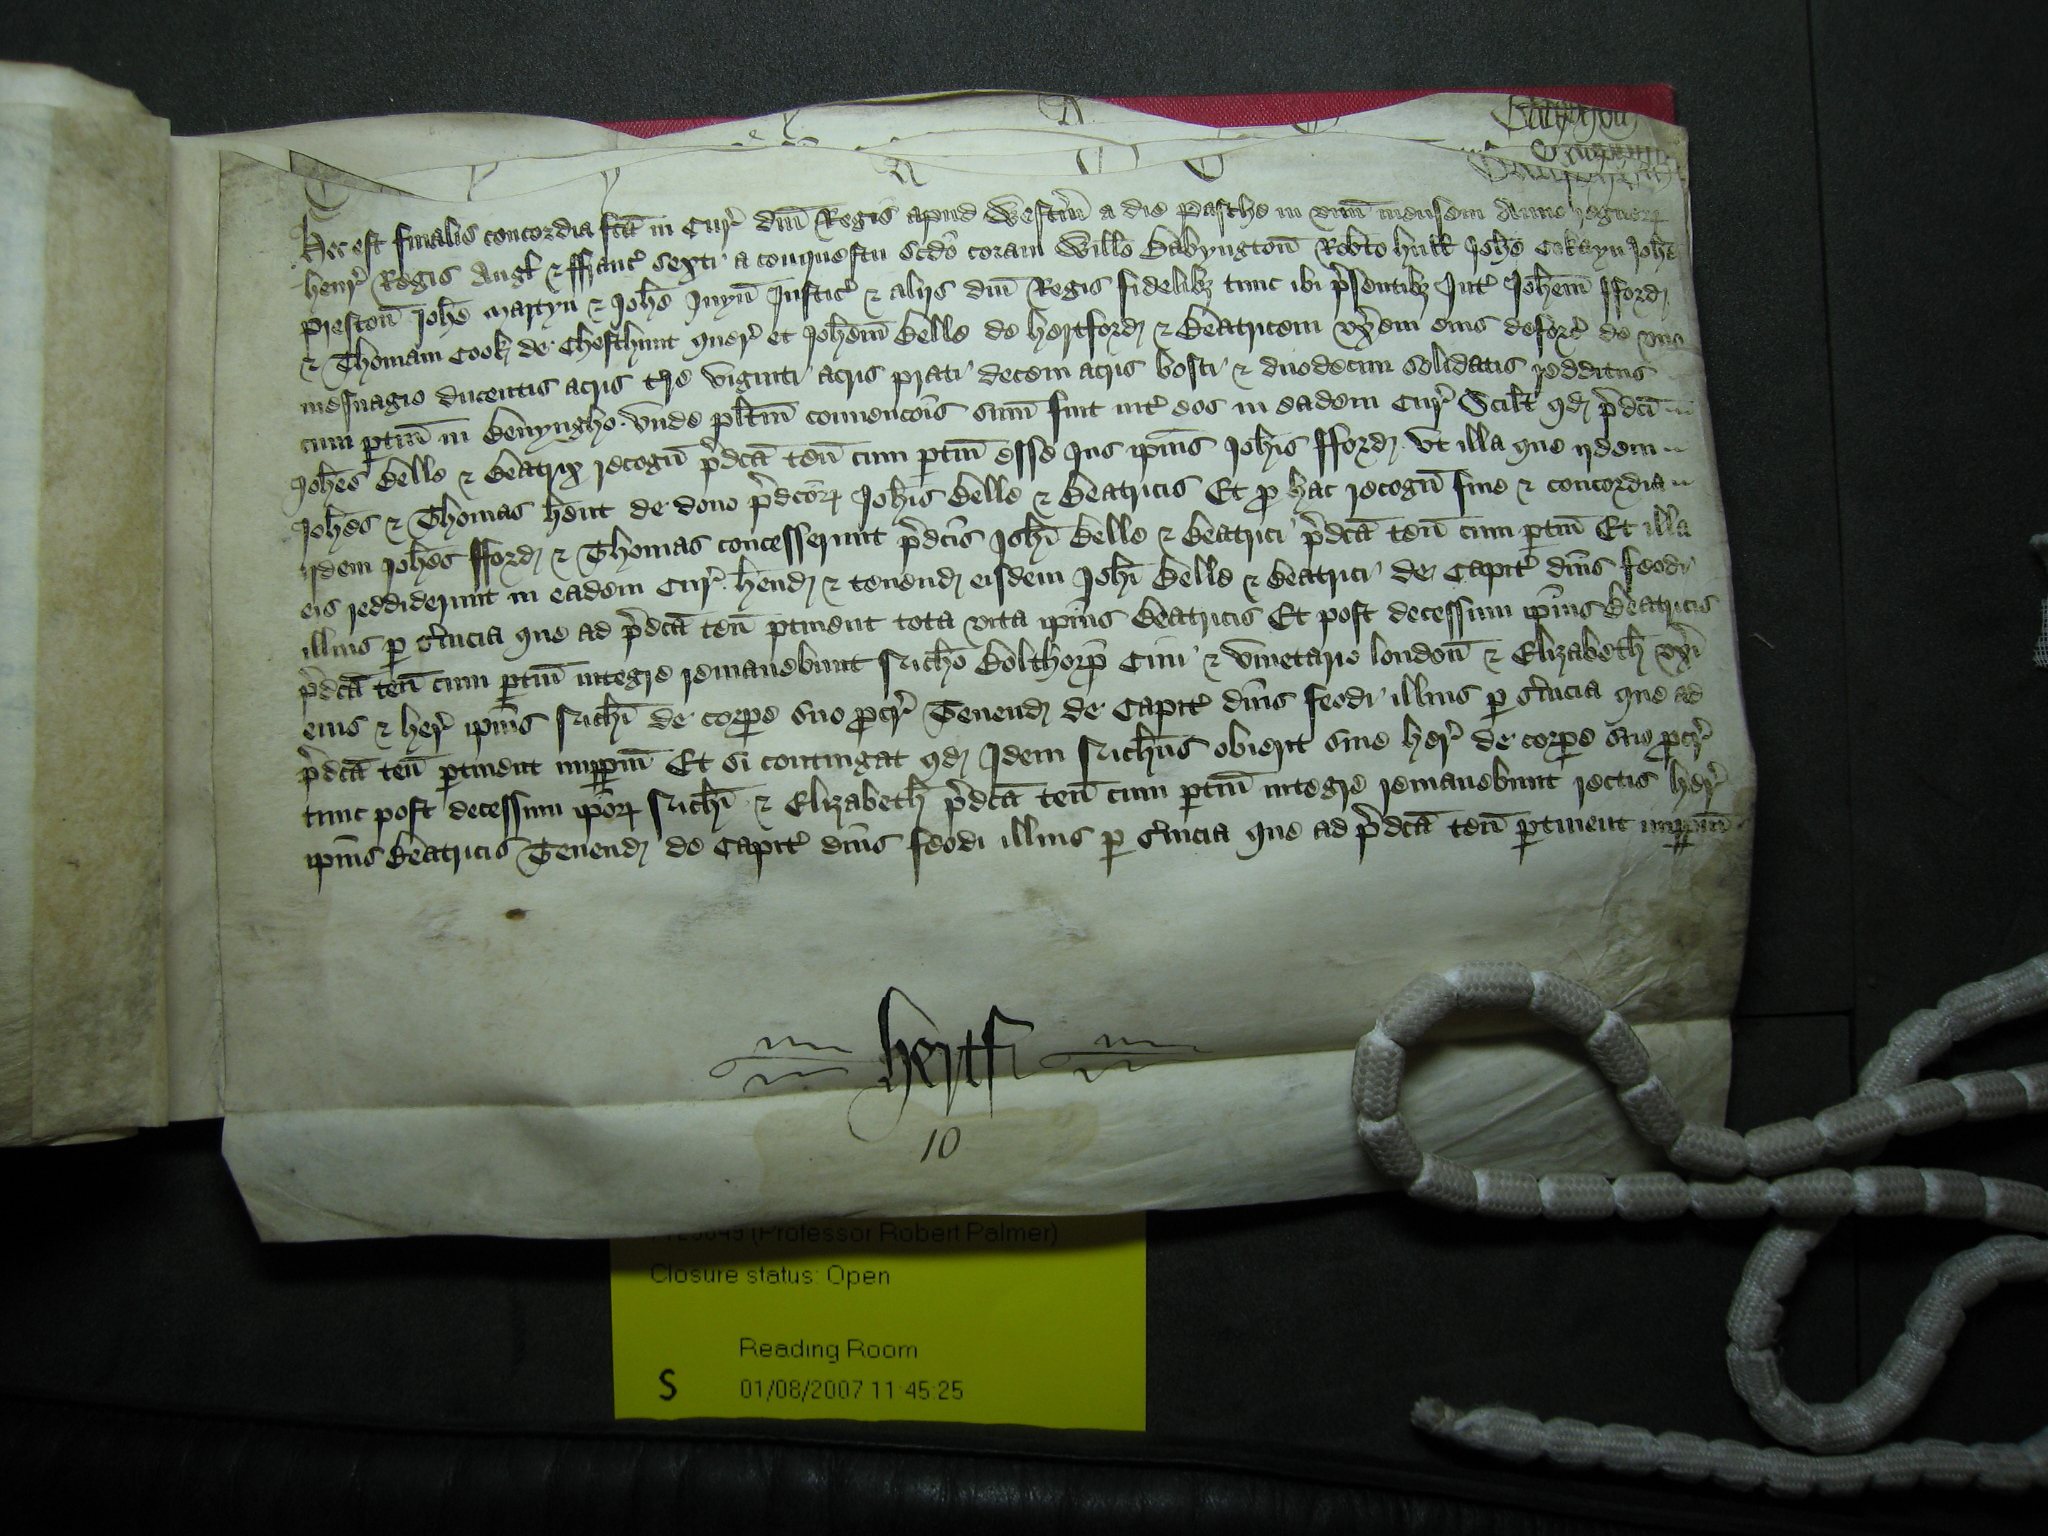 Hec est finalis concordia fcā in Cur' dnī Regis apud Westm̄ a die Pasche in vnū mensem Anno regnorꝝ
henr' Regis Angł & ffranc' sexti a conquestu scdō coram Willo Babyngtoñ Robto hull Johe Cokayn Johe
Prestoñ Johe Martyn & Johe Juyñ Justic' & alijs dnī Regis fidelibȝ tunc ibi p'sentibȝ Int' Johem̄ fford
& Thomam Cook de Chesthunt quer' et Johem̄ Belle de hertford & Beatricem vxem eius deforc' de vno
mesuagio ducentis acris t're viginti acris prati decem acris bosci & duodecim solidatis redditus
cum ptiñ in Benyngho Vnde plitm̄ conuencois sum̄ fuit int' eos in eadem Cur' Scilt qd p'dci
Johes Belle & Beatrix recogñ p'dcā teñ cum ptiñ esse Jus ipius Johis fford vt illa que ijdem
Johes & Thomas hent de dono p'dcorꝝ Johis Belle & Beatricis Et ꝓ hac recogñ fine & concordia
ijdem Johes fford & Thomas concesserunt p'dcis Johi Belle & Beatrici p'dcā teñ cum ptiñ Et illa
eis reddiderunt in eadem Cur' hend & tenend eisdem Johi Belle & Beatrici de Capit' dnis feodi
illius ꝑ s'uicia que ad p'dcā teñ ptinent tota vita ipius Beatricis Et post decessum ipius Beatricis
p'dcā teñ cum ptiñ integre remanebunt Richo Bolthorp Ciui & vinetario londoñ & Elizabeth vxi
eius & her' ipius Richi de corpe suo ꝓcr' Tenend de Capit' dnis feodi illius ꝑ s'uicia que ad
p'dcā teñ ptinent imppm̄ Et si contingat qd Idem Richus obierit sine her' de corpe suo ꝓcr'
tunc post decessum iporꝝ Richi & Elizabeth p'dcā teñ cum ptiñ integre remanebunt rectis her'
ipius Beatricis Tenend de Capit' dnis feodi illius ꝑ s'uicia que ad p'dcā teñ ptinent imppm̄
hertf
10
(Professor Robert Palmer)
Closure status: Open
Reading Room
S 01/08/2007 11:45:25